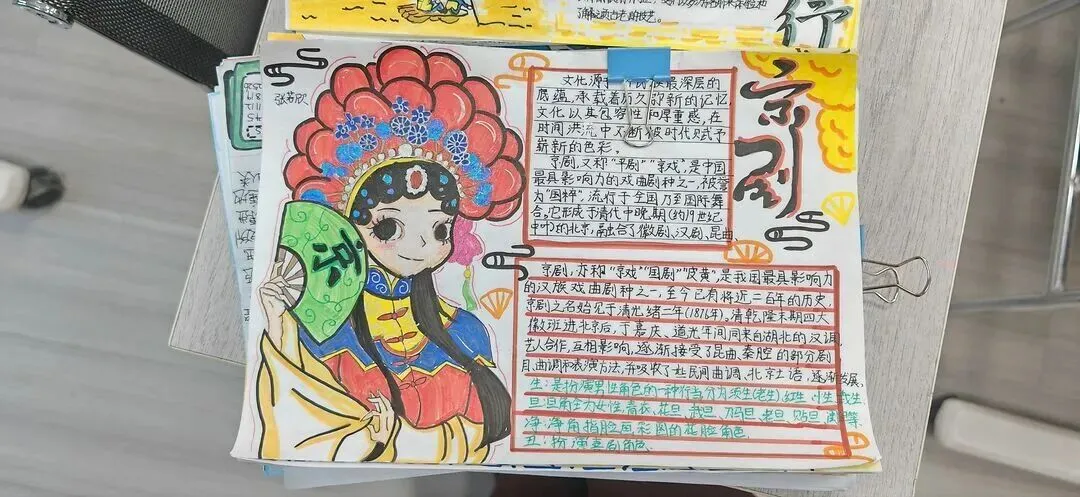 了解这项古老的技艺。
行
张若欣
京剧
京
文化源于 民族最深层的
底蕴,承载着历久弥新的记忆,
文化以其包容性和厚重感,在
时间洪流中不断被时代赋予
崭新的色彩。
京剧,又称“平剧”“京戏”,是中国
最具影响力的戏曲剧种之一,被誉
为“国粹”,流行于全国乃至国际舞
台。它形成于清代中晚期(约19世纪
中叶)的北京,融合了徽剧、汉剧、昆曲
京剧,亦称“京戏”“国剧”“皮黄”,是我国最具影响力
的汉族戏曲剧种之一,至今已有将近二百年的历史,
京剧之名始见于清光绪二年(1876年)。清乾隆末期四大
徽班进北京后,于嘉庆、道光年间同来自湖北的汉调
艺人合作,互相影响,逐渐接受了昆曲、秦腔的部分剧
目、曲调和表演方法,并吸收了 些民间曲调、北京土语,逐渐发展,
生:是扮演男性角色的一种行当,分为须生(老生)、红生、小生、武生
旦:旦角全为女性,青衣、花旦、武旦、刀马旦、老旦、贴旦、闺旦等.
净:净角指脸画彩图的花脸角色.
丑:扮演喜剧角色.